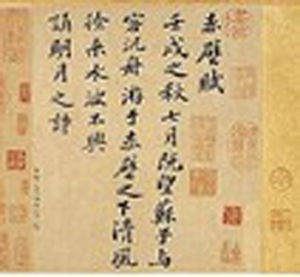 赤壁賦
壬戌之秋七月既望蘇子與
客泛舟游于赤壁之下清風
徐來水波不興
誦明月之詩